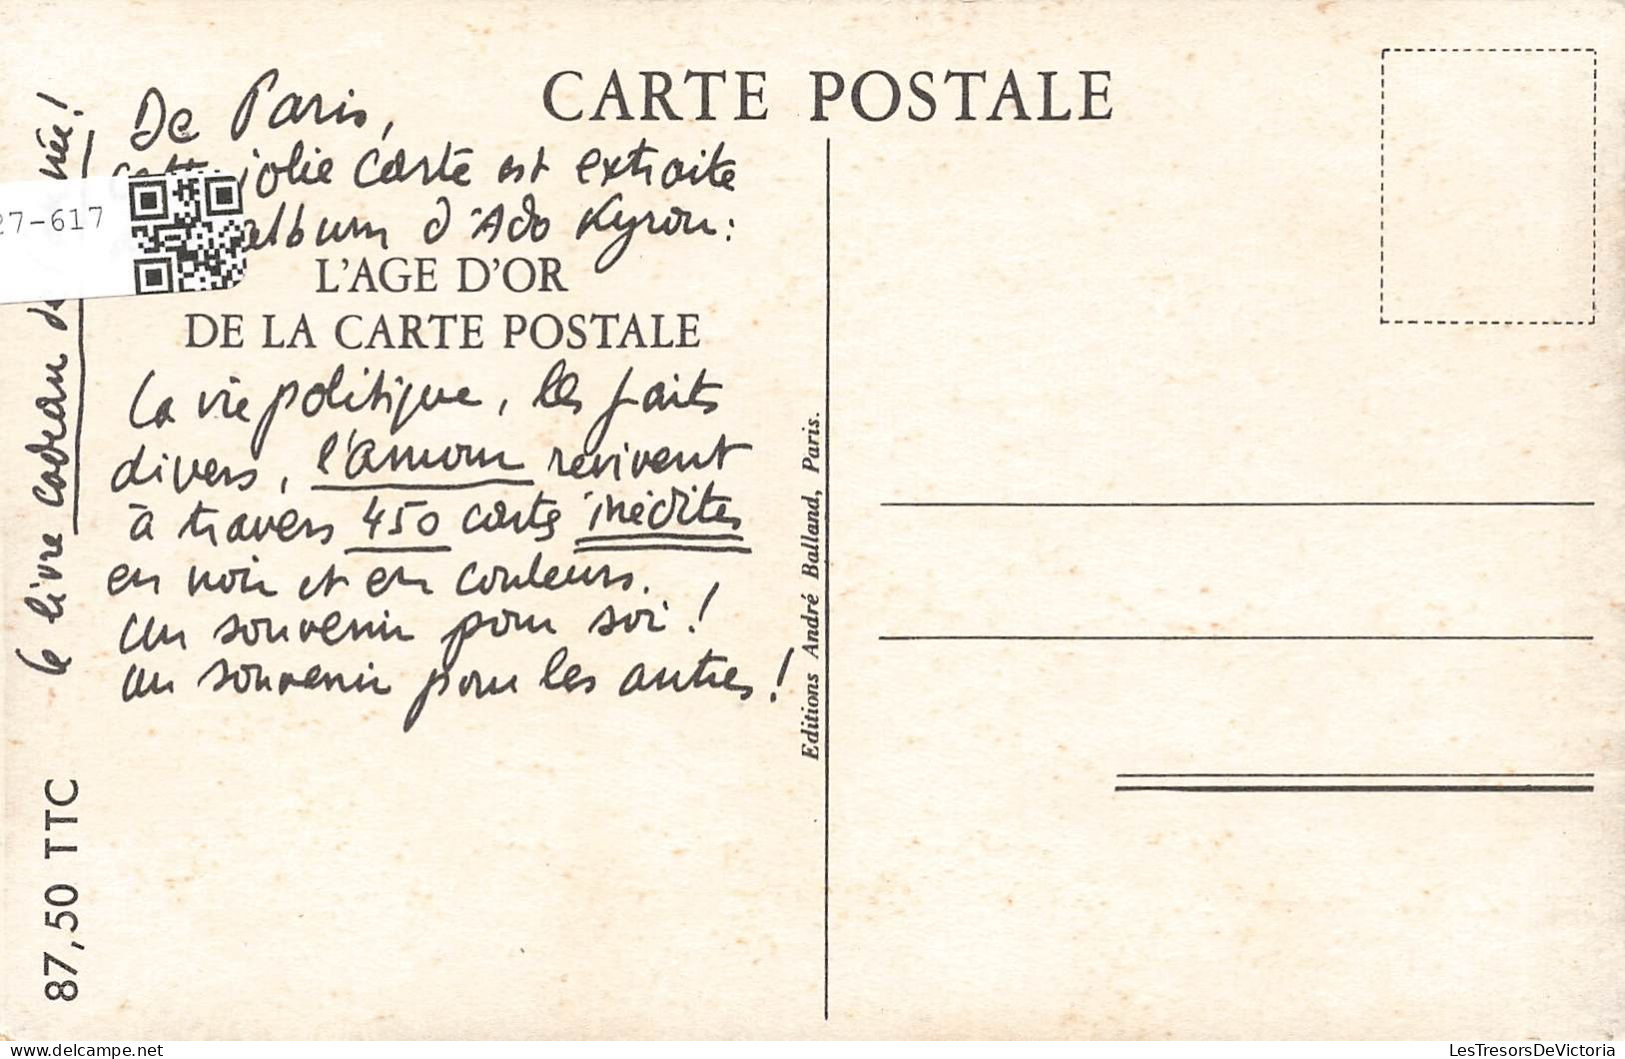 CARTE POSTALE
De Paris,
jolie carte est extraite
album d'Ado Kyrou:
L'AGE D'OR
DE LA CARTE POSTALE
La vie politique, les faits
divers, l'amour revivent
à travers 450 cartes inédites
en noir et en couleurs.
un souvenir pour soi!
un souvenir pour les autres!
le livre cadeau
87,50 TTC
Editions André Balland, Paris.
27-617
delcampe.net
LesTresorsDeVictoria